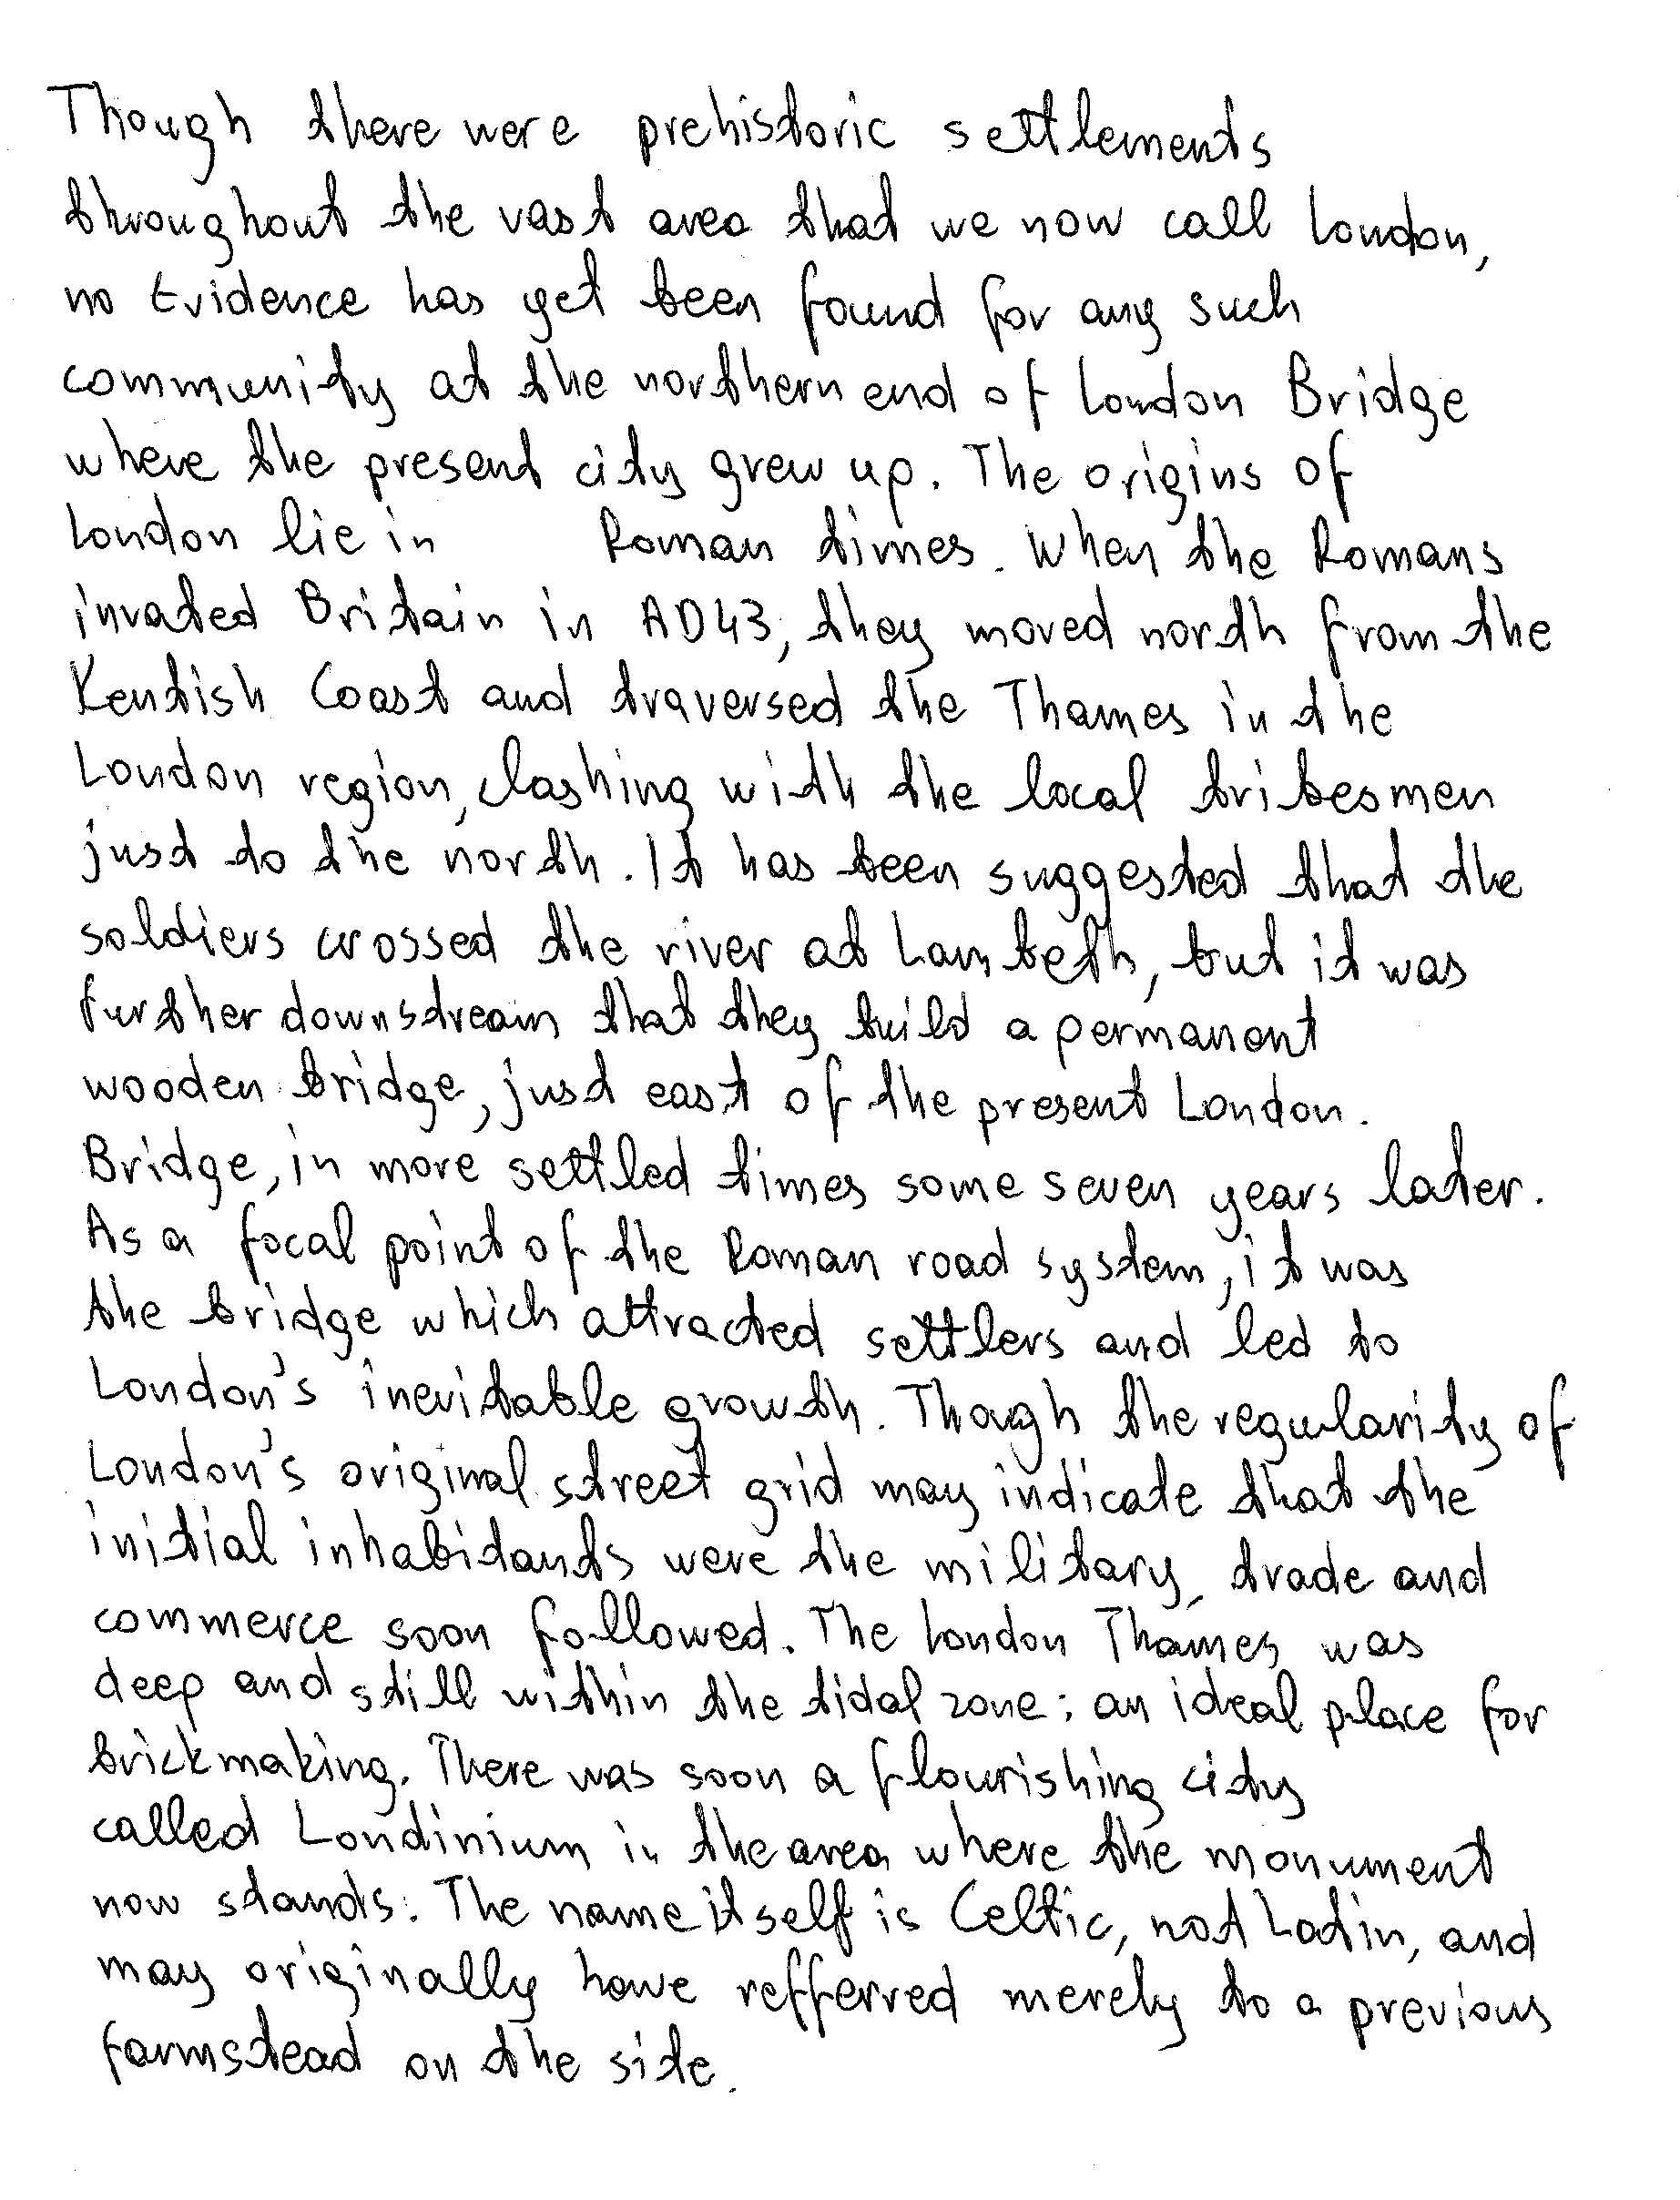 Though there were prehistoric settlements
throughout the vast area that we now call London,
no Evidence has yet been found for any such
community at the northern end of London Bridge
where the present city grew up. The origins of
London lie in Roman times. When the Romans
invated Britain in AD43, they moved north from the
Kentish Coast and traversed the Thames in the
London region, clashing with the local tribesmen
just to the north. It has been suggested that the
soldiers crossed the river at Lambeth, but it was
further downstream that they build a permanent
wooden bridge, just east of the present London.
Bridge, in more settled times some seven years later.
As a focal point of the Roman road system, it was
the bridge which attracted settlers and led to
London's inevitable growth. Though the regularity of
London's original street grid may indicate that the
initial inhabitants were the military, trade and
commerce soon followed. The London Thames was
deep and still within the tidal zone: an ideal place for
brickmaking. There was soon a flourishing city
called Londinium in the area where the monument
now stands. The name itself is Celtic, not Latin, and
may originally have refferred merely to a previous
farmstead on the side.